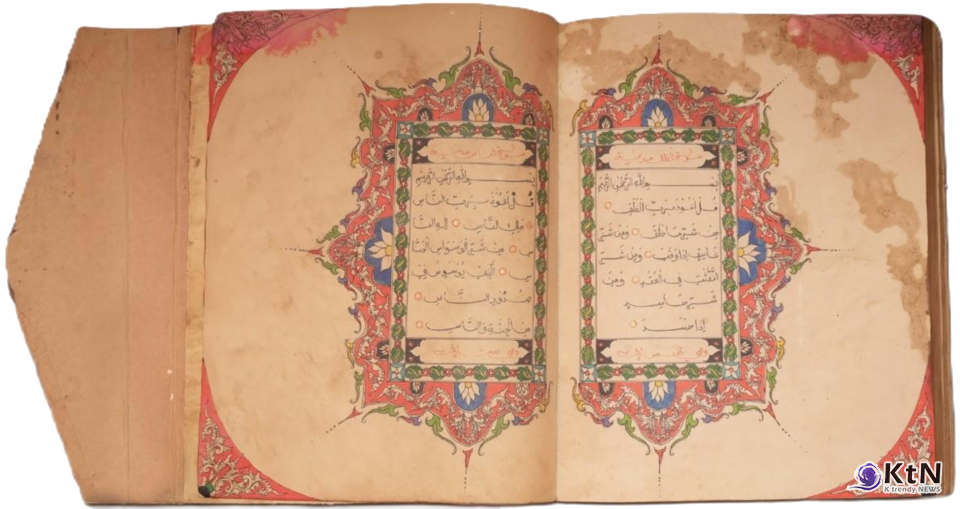 بِسْمِ اللّٰهِ الرَّحْمٰنِ الرَّحِيْمِ
قُلْ اَعُوْذُ بِرَبِّ الْفَلَقِ
مِنْ شَرِّ مَا خَلَقَ وَمِنْ شَرِّ
غَاسِقٍ اِذَا وَقَبَ وَمِنْ شَرِّ
النَّفّٰثٰتِ فِي الْعُقَدِ وَمِنْ
شَرِّ حَاسِدٍ
اِذَا حَسَدَ
بِسْمِ اللّٰهِ الرَّحْمٰنِ الرَّحِيْمِ
قُلْ اَعُوْذُ بِرَبِّ النَّاسِ
مَلِكِ النَّاسِ اِلٰهِ النَّا
سِ مِنْ شَرِّ الْوَسْوَاسِ الْخَنَّا
سِ الَّذِيْ يُوَسْوِسُ فِيْ
صُدُوْرِ النَّاسِ
مِنَ الْجِنَّةِ وَالنَّاسِ
KtN
K trendy NEWS